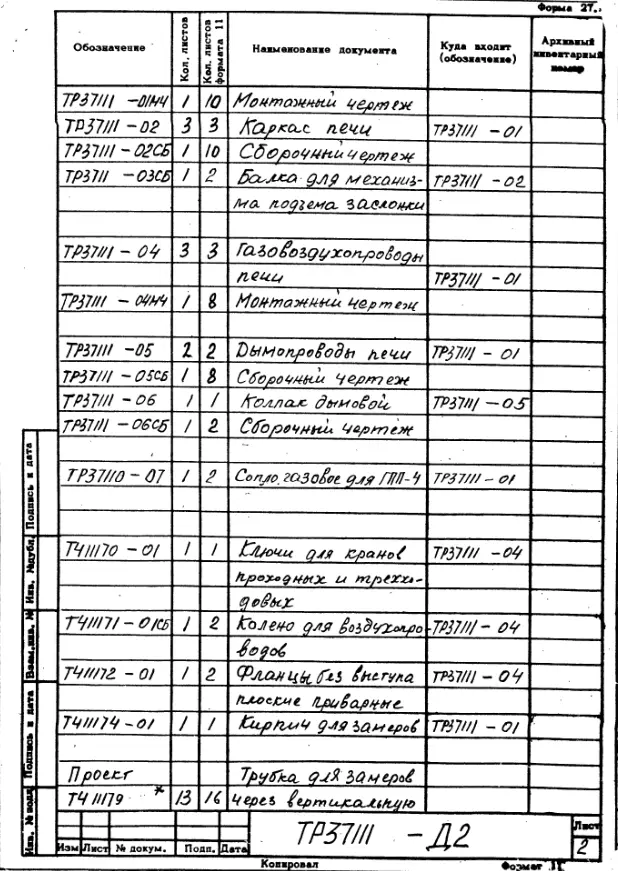 Форма 27.
Обозначение Кол. листов Кол. листов формата 11 Наименование документа Куда входит (обозначение) Архивный инвентарный номер
ТР37111 -01МЧ 1 10 Монтажный чертеж
ТР37111 -02 3 3 Каркас печи ТР37111 -01
ТР37111 -02СБ 1 10 Сборочный чертеж
ТР3711 -03СБ 1 2 Балка для механиз- ТР37111 -02
ма подъема заслонки
ТР37111 -04 3 3 Газовоздухопроводы
печи ТР37111 -01
ТР37111 -04МЧ 1 8 Монтажный чертеж
ТР37111 -05 2 2 Дымопроводы печи ТР37111 -01
ТР37111 -05СБ 1 8 Сборочный чертеж
ТР37111 -06 1 1 Колпак дымовой ТР37111 -05
ТР37111 -06СБ 1 2 Сборочный чертеж
ТР37110 -07 1 2 Сопло газовое для ГПП-4 ТР37111 -01
Т411170 -01 1 1 Ключи для кранов ТР37111 -04
проходных и треххо-
довых
Т411171 -01СБ 1 2 Колено для воздухопро- ТР37111 -04
водов
Т411172 -01 1 2 Фланцы без выступа ТР37111 -04
плоские приварные
Т411174 -01 1 1 Кирпич для замеров ТР37111 -01
Проект Трубка для замеров
Т411179 * 13 16 через вертикальную
Подпись и дата
Инв. №дубл.
Взам.инв. №
Подпись и дата
Инв. №подл.
ТР37111 -Д2
Лист
2
Изм Лист № докум. Подп. Дата
Копировал Формат 11